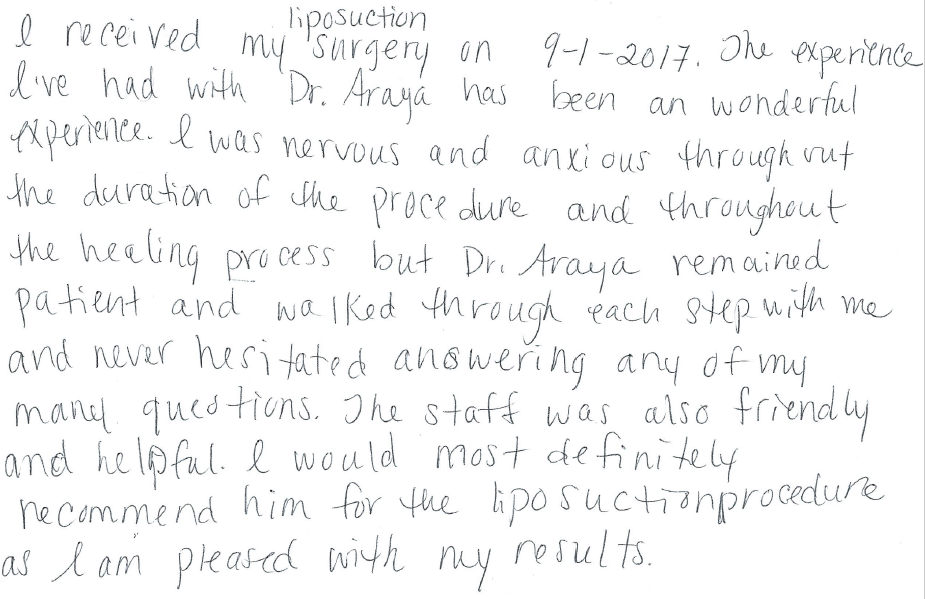 liposuction
I received my surgery on 9-1-2017. The experience
I've had with Dr. Araya has been an wonderful
experience. I was nervous and anxious throughout
the duration of the procedure and throughout
the healing process but Dr. Araya remained
patient and walked through each step with me
and never hesitated answering any of my
many questions. The staff was also friendly
and helpful. I would most definitely
recommend him for the liposuction procedure
as I am pleased with my results.